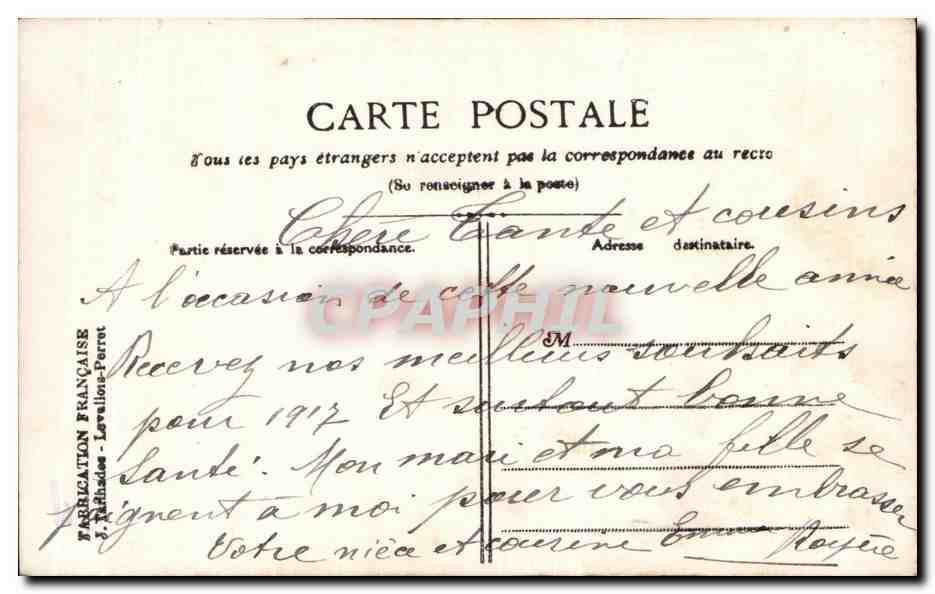 CARTE POSTALE
Tous les pays étrangers n'acceptent pas la correspondance au recto
(Se renseigner à la poste)
Chere Tante et cousins
Partie réservée à la correspondance.
Adresse destinataire.
A l'occasion de cette nouvelle année
CPAPHIL
M
Recevez nos meilleurs souhaits
pour 1917 Et surtout bonne
Santé. Mon mari et ma fille se
joignent à moi pour vous embrasser
Votre nièce et cousine Emma
FABRICATION FRANÇAISE
J. Tailhades - Levallois-Perret